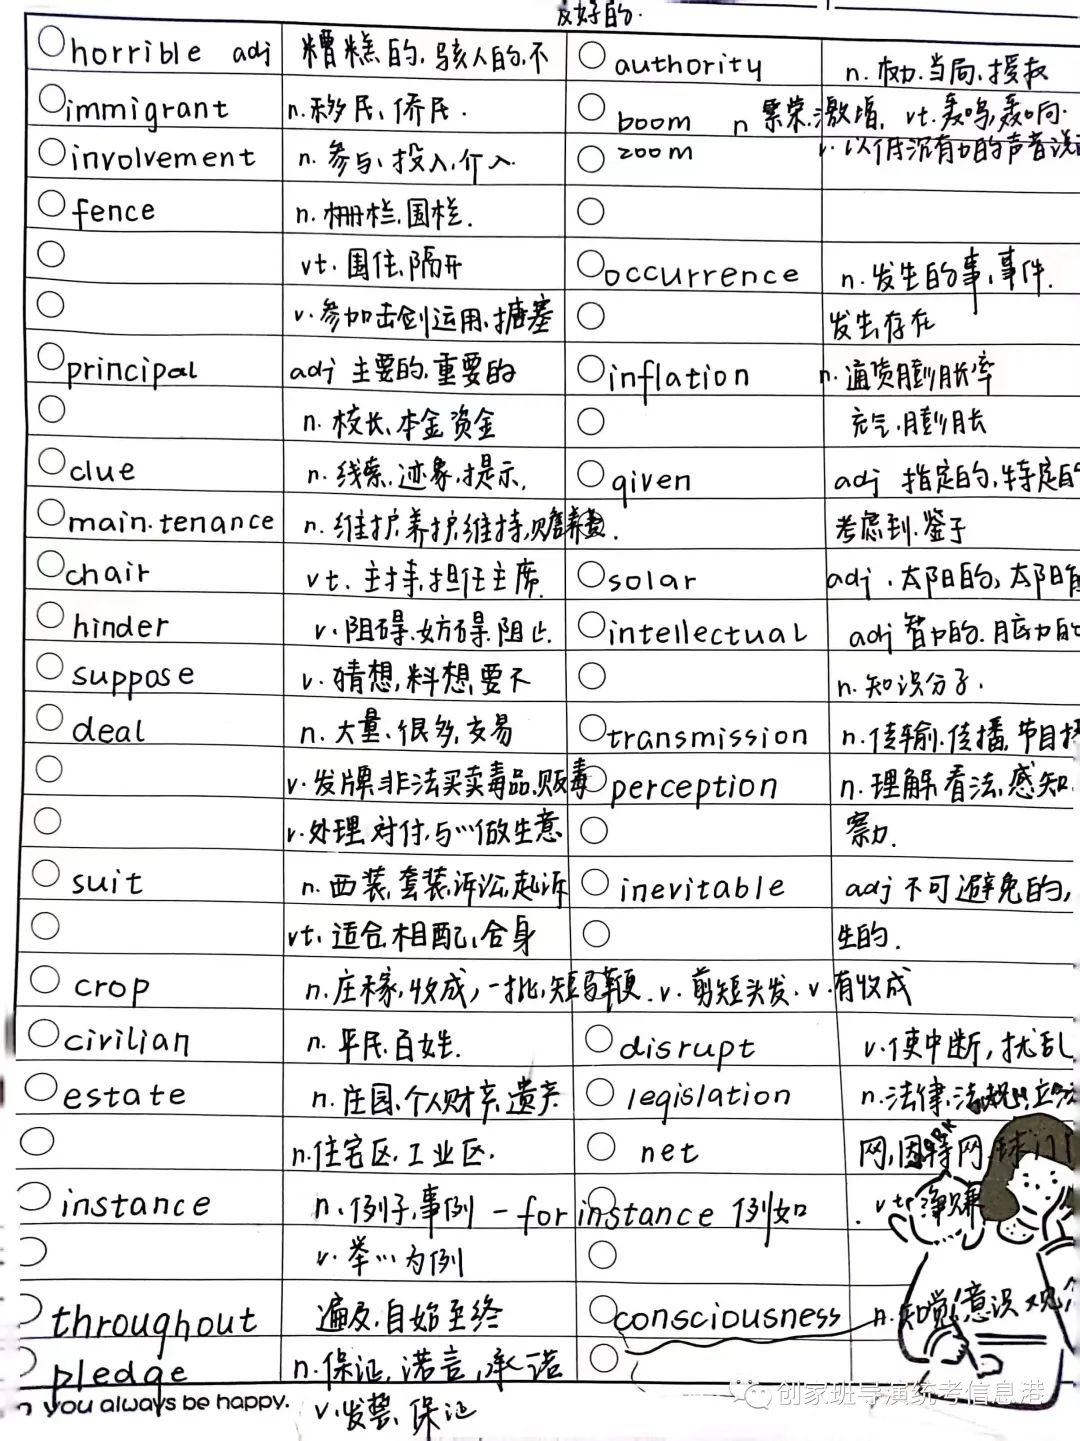 友好的.
horrible adj 糟糕的,骇人的,不
immigrant n.移民、侨民.
involvement n. 参与、投入,介入.
fence n. 栅栏,围栏.
vt. 围住,隔开
v.参加击剑运用,搪塞
principal adj 主要的,重要的
n. 校长,本金 资金
clue n.线索,迹象,提示.
main.tenance n.维护,养护,维持,赡养费.
chair vt. 主持,担任主席.
hinder v.阻碍,妨碍,阻止
suppose v.猜想,料想,要不
deal n.大量、很多,交易
v.发牌,非法买卖毒品,贩毒
v.处理,对付,与…做生意
suit n.西装,套装,诉讼,起诉
vt. 适合,相配、合身
crop n.庄稼,收成,一批,短马鞭.v.剪短头发.v.有收成
civilian n. 平民,百姓.
estate n.庄园、个人财产,遗产
n.住宅区,工业区.
instance n.例子,事例 - for instance 例如
v.举…为例
throughout 遍及,自始至终
pledge n.保证,诺言,承诺
v.发誓、保证
authority n.权力.当局,授权
boom n 繁荣,激增, vt.轰鸣,轰响.
zoom v.以低沉有力的声音说
occurrence n.发生的事,事件.
发生,存在
inflation n.通货膨胀率
充气,膨胀
given adj 指定的,特定的
考虑到.鉴于
solar adj.太阳的,太阳能
intellectual adj 智力的.脑力的
n.知识分子.
transmission n.传输.传播,节目播
perception n.理解,看法,感知.
察力.
inevitable adj 不可避免的,
生的.
disrupt v.使中断,扰乱
legislation n.法律,法规,立法
net 网,因特网,球门
vt 净赚
consciousness n.知觉,意识,观
you always be happy.
创家班导演统考信息港